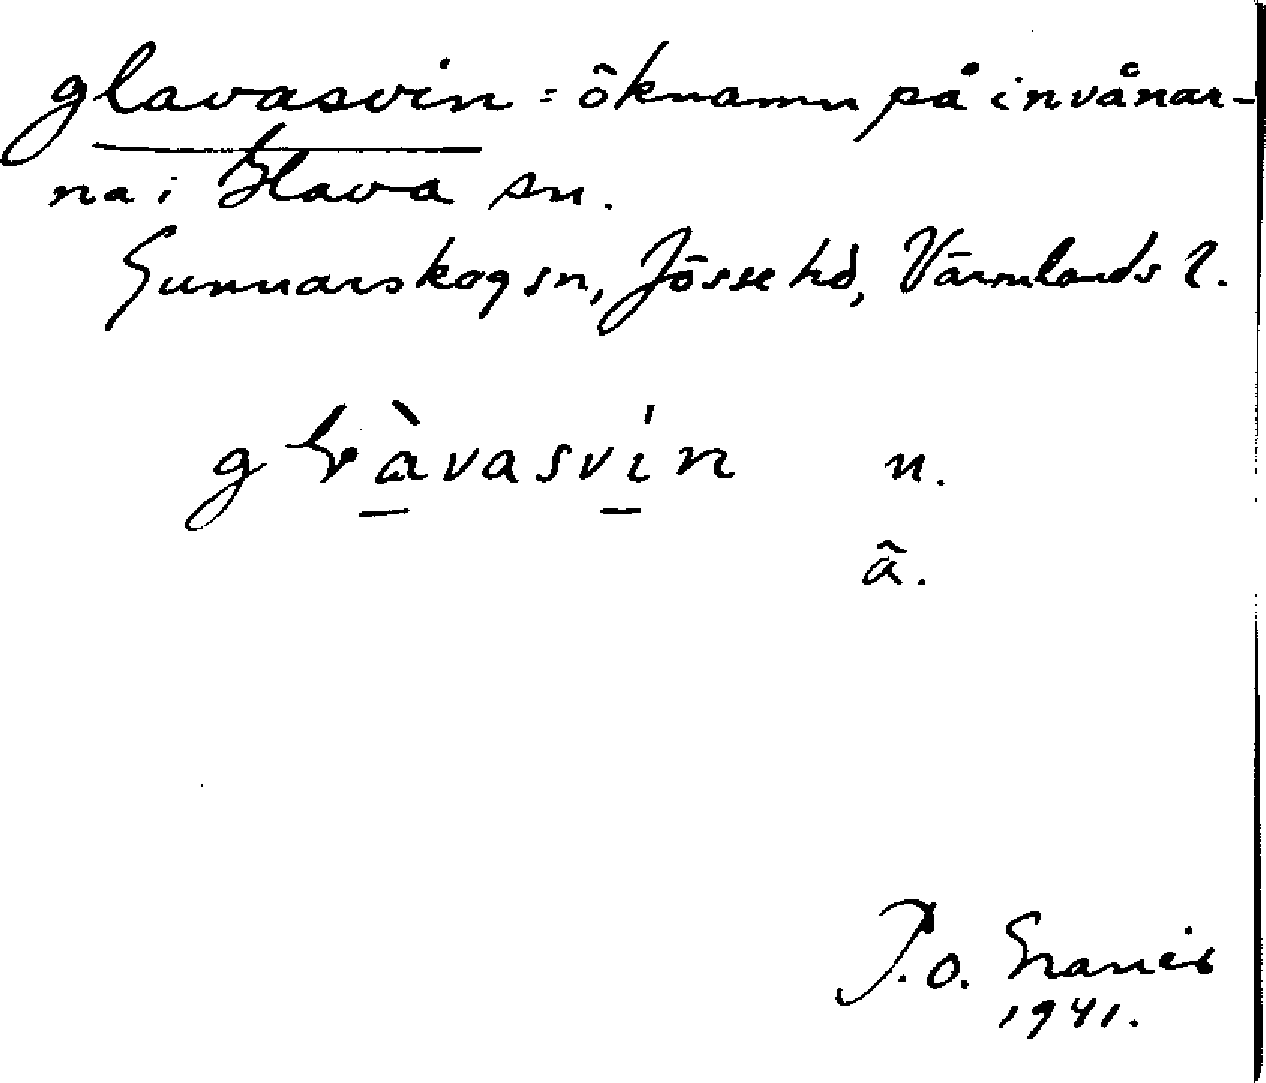 glavasvin = öknamn på invånar-
na i Glava sn.
Gunnarskog sn, Jösse hd, Värmlands l.
n.
ã.
P.o.
1941.